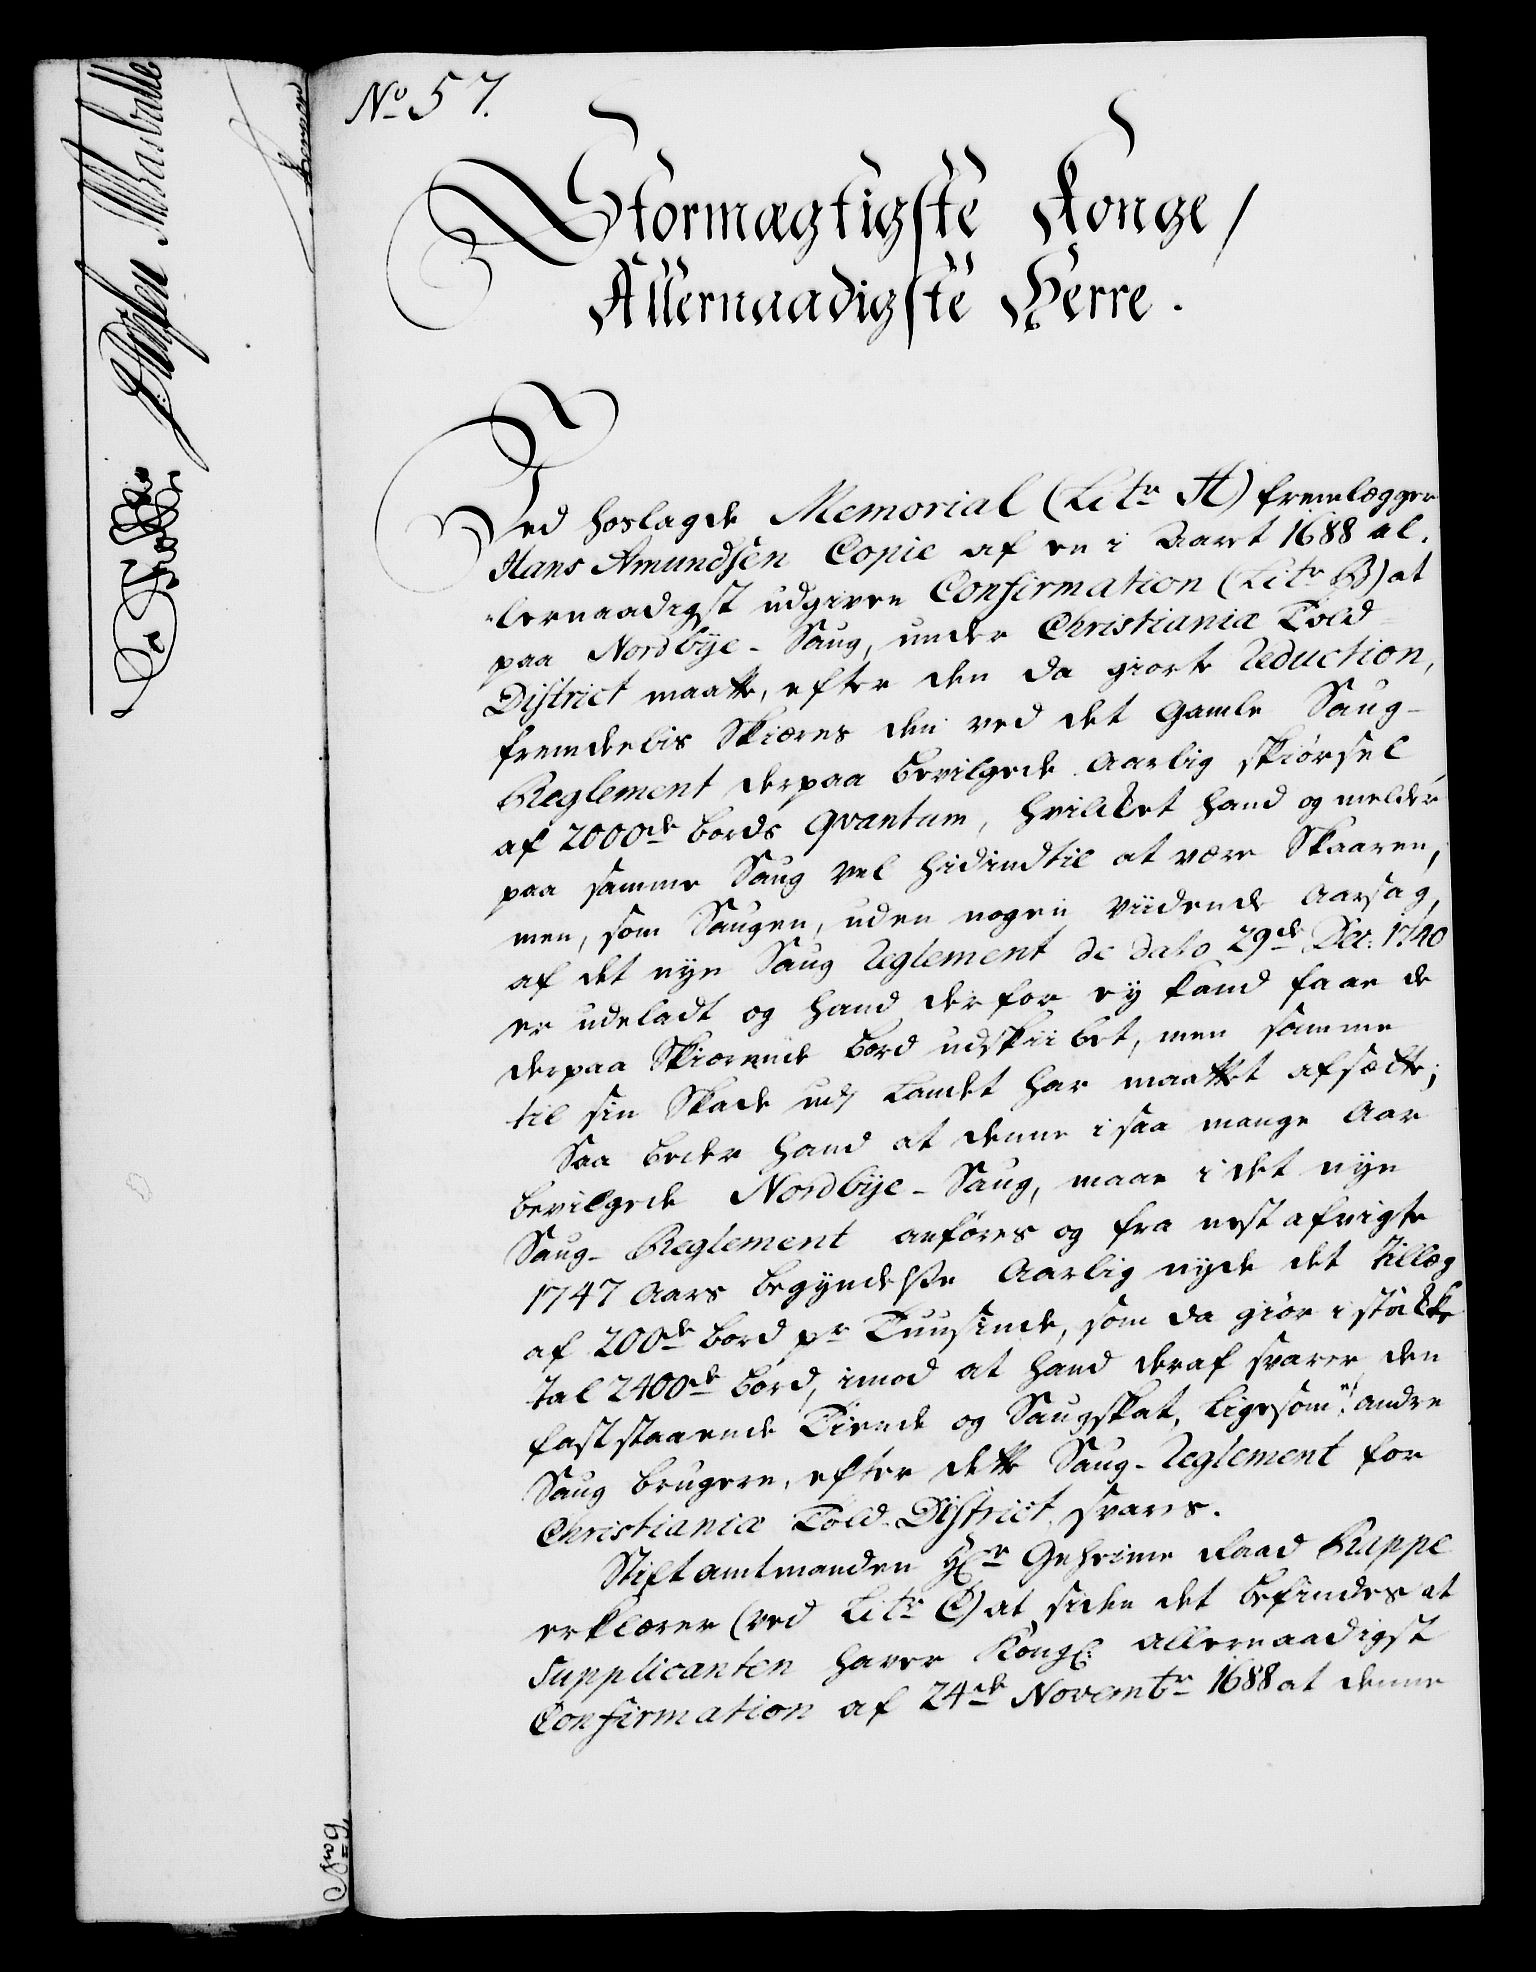 No 57.
Stormægtigste Konge/
Allernaadigste Herre.
Ved hoslagde Memorial (Litr A) fremlægger
Hans Amundsen Copie af en i Aaret 1688 al-
lernaadigst udgiven Confirmation (Litr B) at
paa Nordbÿe-Saug, under Christianiæ Told-
District maatte, efter den da giorte Reduction,
fremdeelis Skiæres den ved det gamle Saug-
Reglement derpaa bevilgede aarlig skiørsel
af 2000de bords qvantum, hvilket hand og melder
paa samme Saug vel hidindtil at være Skaaren,
men, som Saugen, uden nogen viidende Aarsag,
af det nye Saug Reglement de dato 29de Dec: 1740
er udeladt og hand derfor eÿ kand faae de
derpaa Skiærende bord udskiibet, men samme
til sin Skade udj Landet har maattet afsætte;
Saa beder hand at denne i saa mange Aar
bevilgede Nordbÿe-Saug, maae i det nye
Saug-Reglement anføres og fra nest afvigte
1747 Aars begyndelse Aarlig nyde det tillæg
af 200de bord pr Tuusinde, som da giør i stÿkke
tal 2400de bord, imod at hand deraf svarer den
fastsaaende Tiende og Saugskat, ligesom af andre
Saug brugere, efter dette Saug-Reglement for
Christianiæ Told-District svares.
Stiftamtmanden Hr Geheime Raad Rappe
erklærer (ved Litr C) at siden det befindes at
Supplicanten haver Kongl: allernaadigst
Confirmation af 24de Novembr 1688 at denne